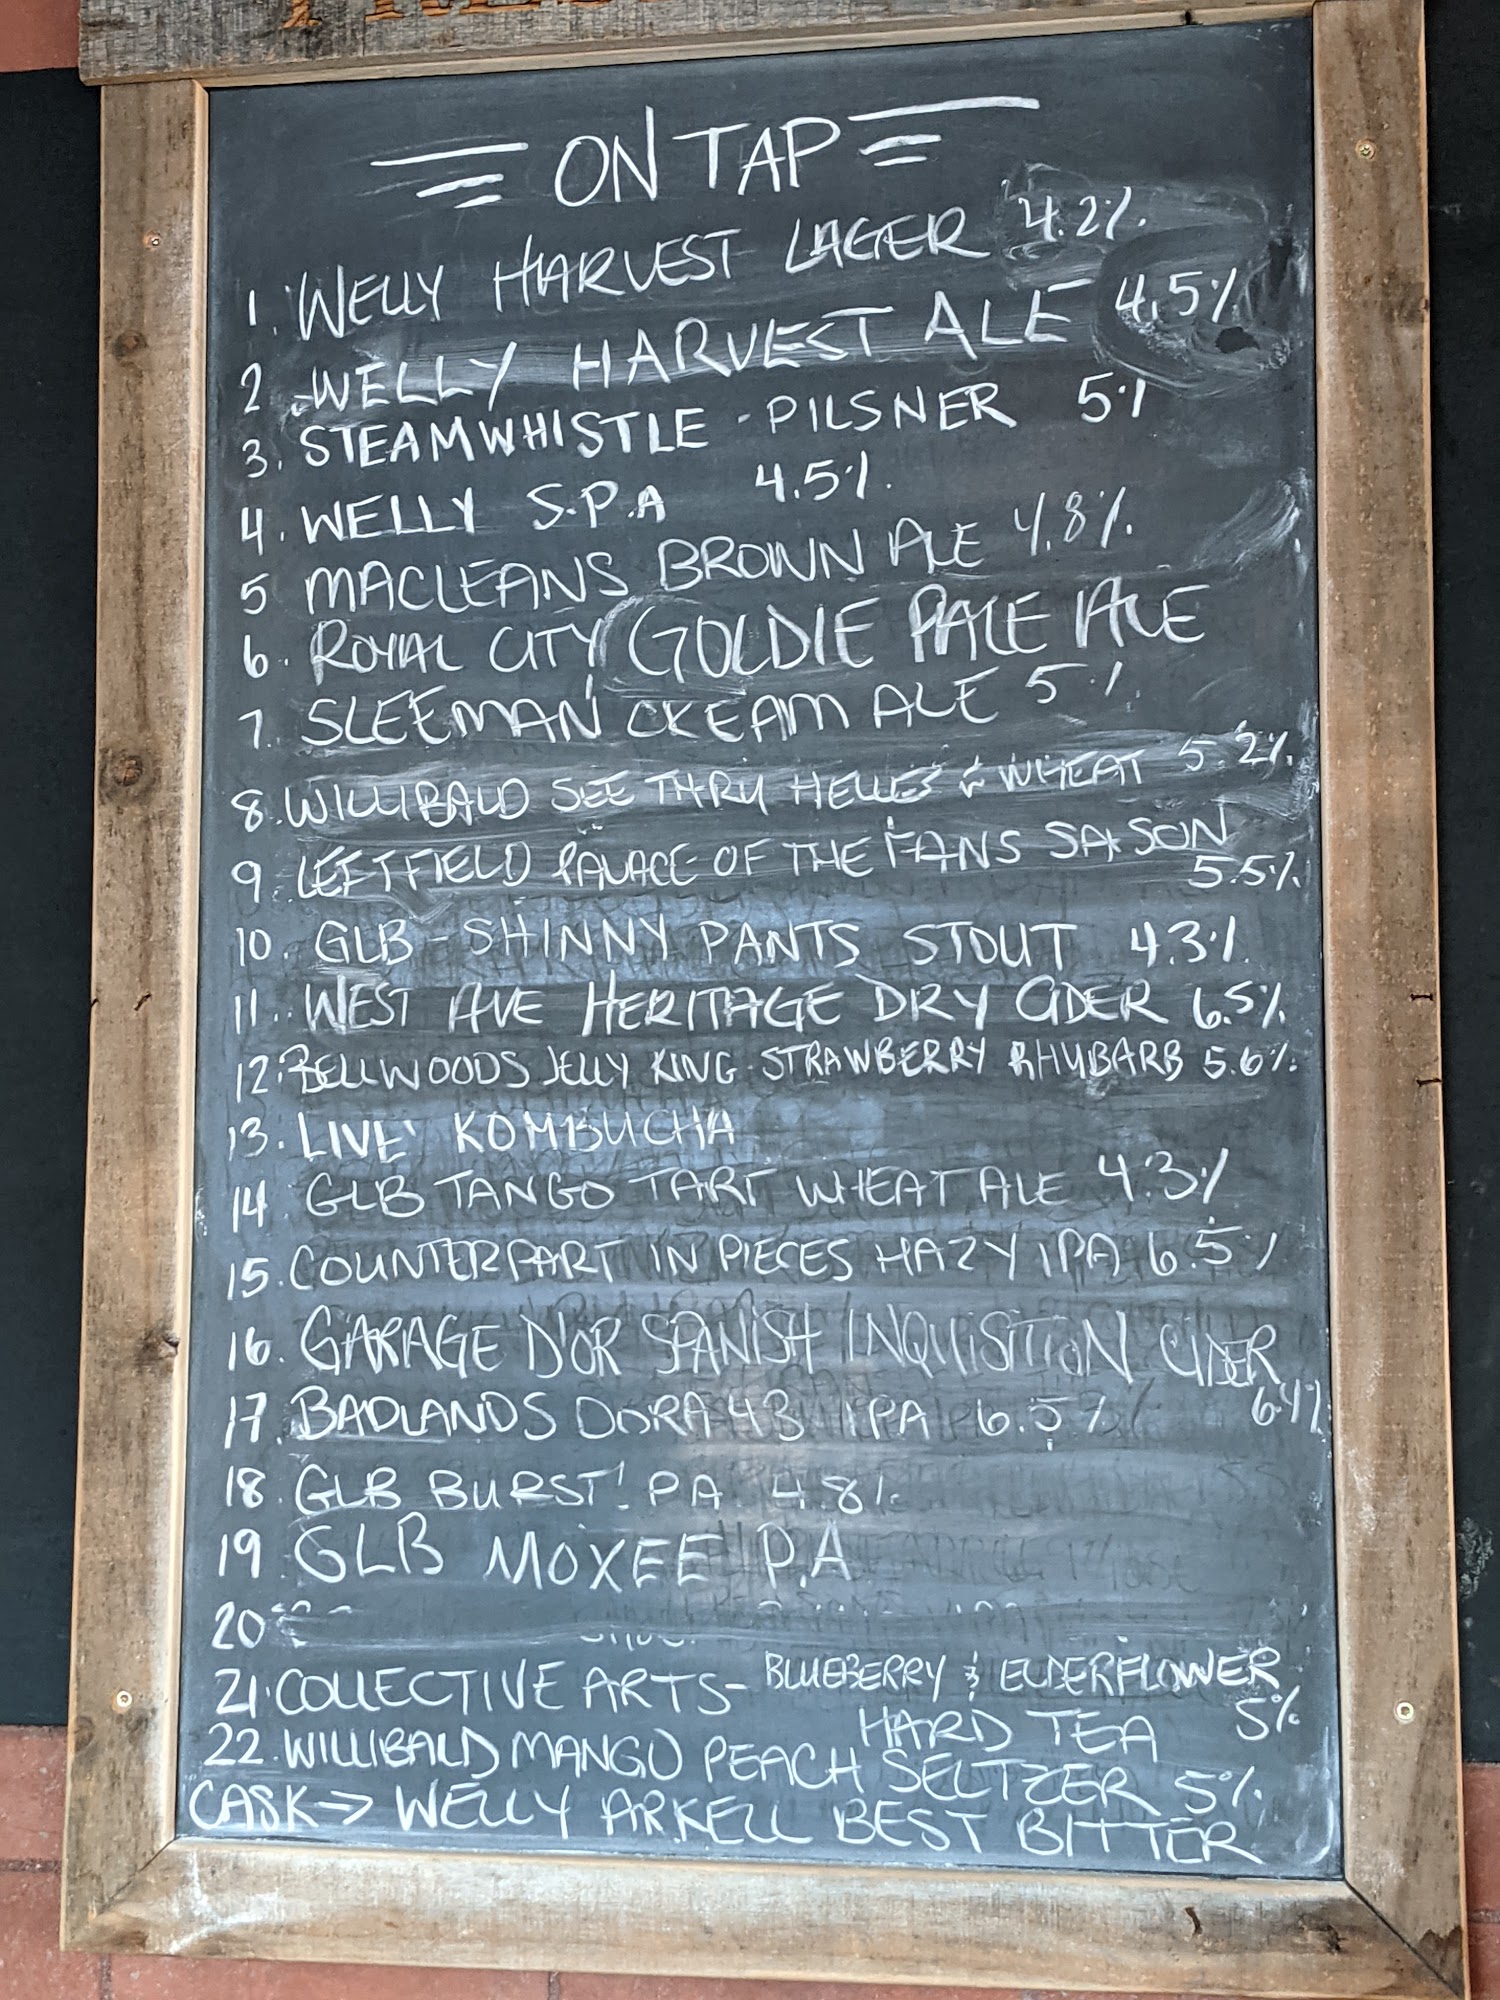 ON TAP
1. WELLY HARVEST LAGER 4.2%
2 WELLY HARVEST ALE 4.5%
3. STEAMWHISTLE - PILSNER 5%
4. WELLY S.P.A 4.5%
5 MACLEANS BROWN ALE 4.8%
6. ROYAL CITY GOLDIE PALE ALE
7. SLEEMAN CREAM ALE 5%
8. WILLIBALD SEE THRU HELLES & WHEAT 5.2%
9 LEFTFIELD PALACE OF THE FANS SAISON
5.5%
10. GLB - SHINNY PANTS STOUT 4.3%
11. WEST AVE HERITAGE DRY CIDER 6.5%
12. BELLWOODS JELLY KING STRAWBERRY RHUBARB 5.6%
13. LIVE KOMBUCHA
14 GLB TANGO TART WHEAT ALE 4.3%
15. COUNTERPART IN PIECES HAZY IPA 6.5%
16. GARAGE D'OR SPANISH INQUISITION CIDER
6.4%
17. BADLANDS DORA 43 IPA 6.5%
18. GLB BURST! PA 4.8%
19 GLB MOXEE P.A
20
21. COLLECTIVE ARTS - BLUEBERRY & ELDERFLOWER
HARD TEA 5%
22. WILLIBALD MANGO PEACH SELTZER 5%
CASK → WELLY ARKELL BEST BITTER